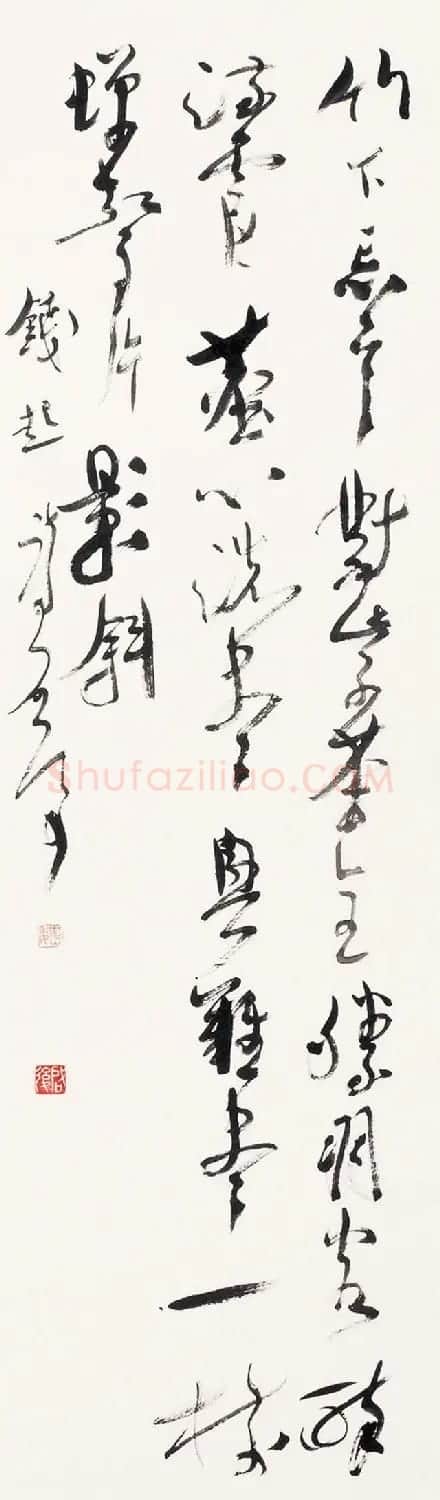 竹下忘言對紫茶全勝羽客醉
流霞塵心洗盡興難盡一樹
蟬聲片影斜
錢起詩
Shufaziliao.COM